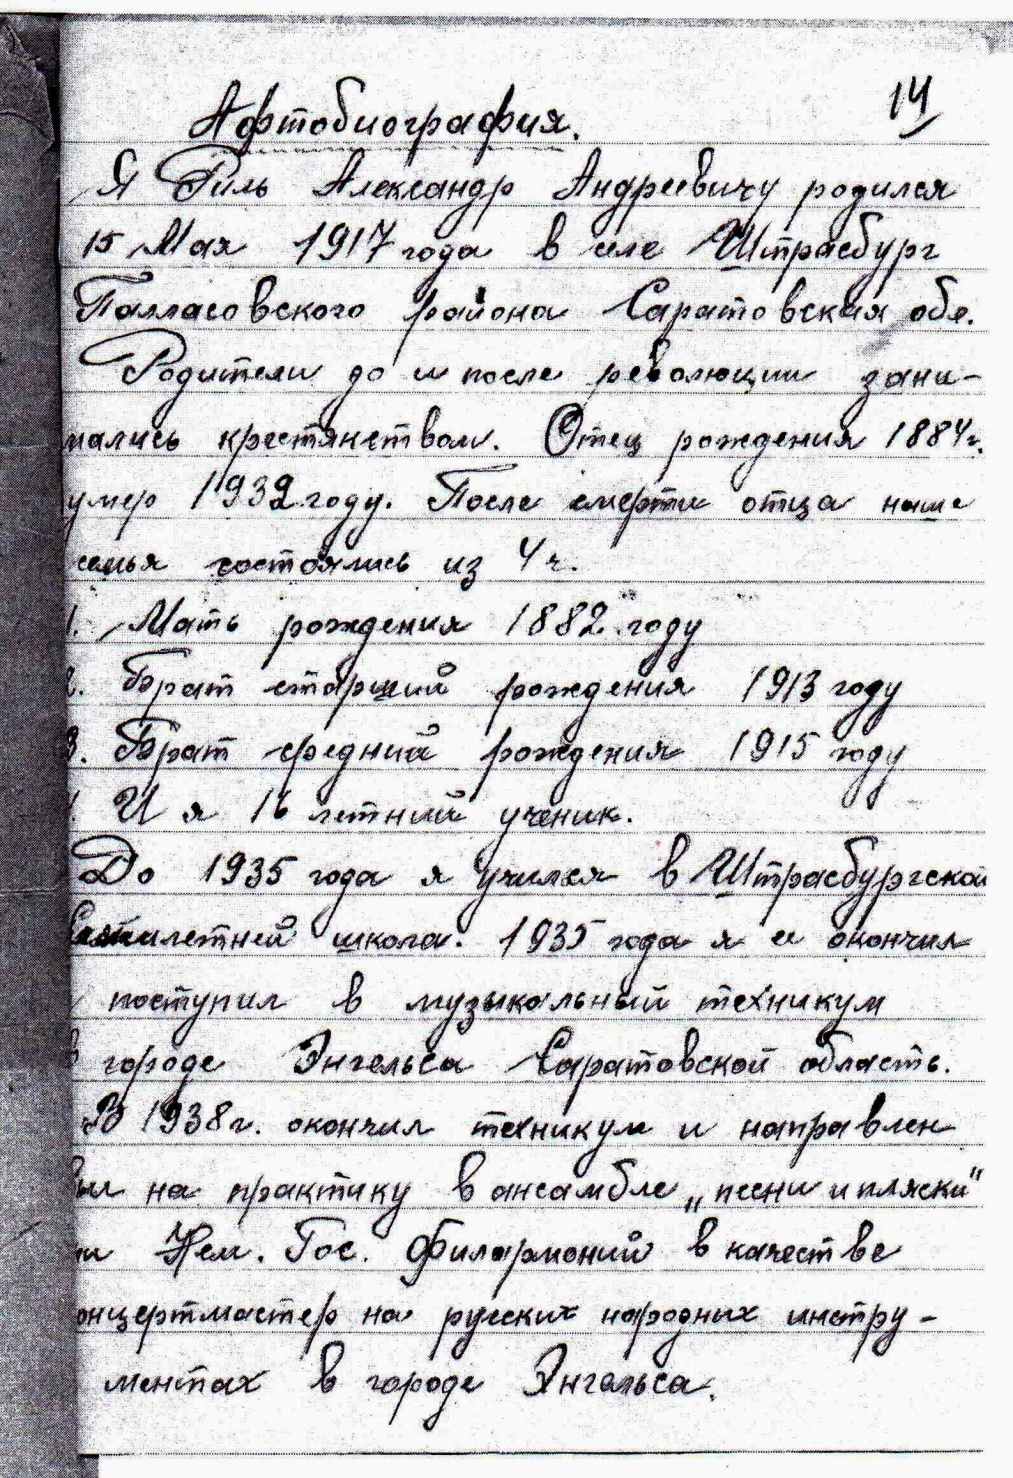 14
Афтобиография.
Я Риль Александр Андреевичу родился
15 Мая 1917 года в селе Штрасбург
Палласовского района Саратовская обл.
Родители до и после революции зани-
мались крестянством. Отец рождения 1884г.
умер 1932 году. После смерти отца наше
семья состоялись из 4 ч.
1. Мать рождения 1882 году
2. Брат старший рождения 1913 году
3. Брат средний рождения 1915 году
И я 16 летний ученик.
До 1935 года я учился в Штрасбургской
школа. 1935 года я ее окончил
поступил в музыкальный техникум
в городе Энгельса Саратовской область.
В 1938г. окончил техникум и направлен
был на практику в ансамбле „песни и пляски"
Нем. Гос. Филармоний в качестве
онцертмастер на русских народных инстру-
ментах в городе Энгельса.